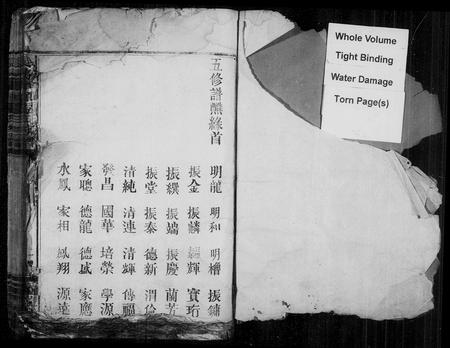 五修譜𤋮綠首
明龍 明和 明檜 振鏞
振金 振麟 耀輝 寶珩
振鑌 振端 振慶 蘭芳
振堂 振泰 德新 渭倫
清純 清連 清輝 傳福
發昌 國華 培榮 學源
家聰 德龍 德威 家應
水鳳 家相 鳳翔 源達
Whole Volume
Tight Binding
Water Damage
Torn Page(s)